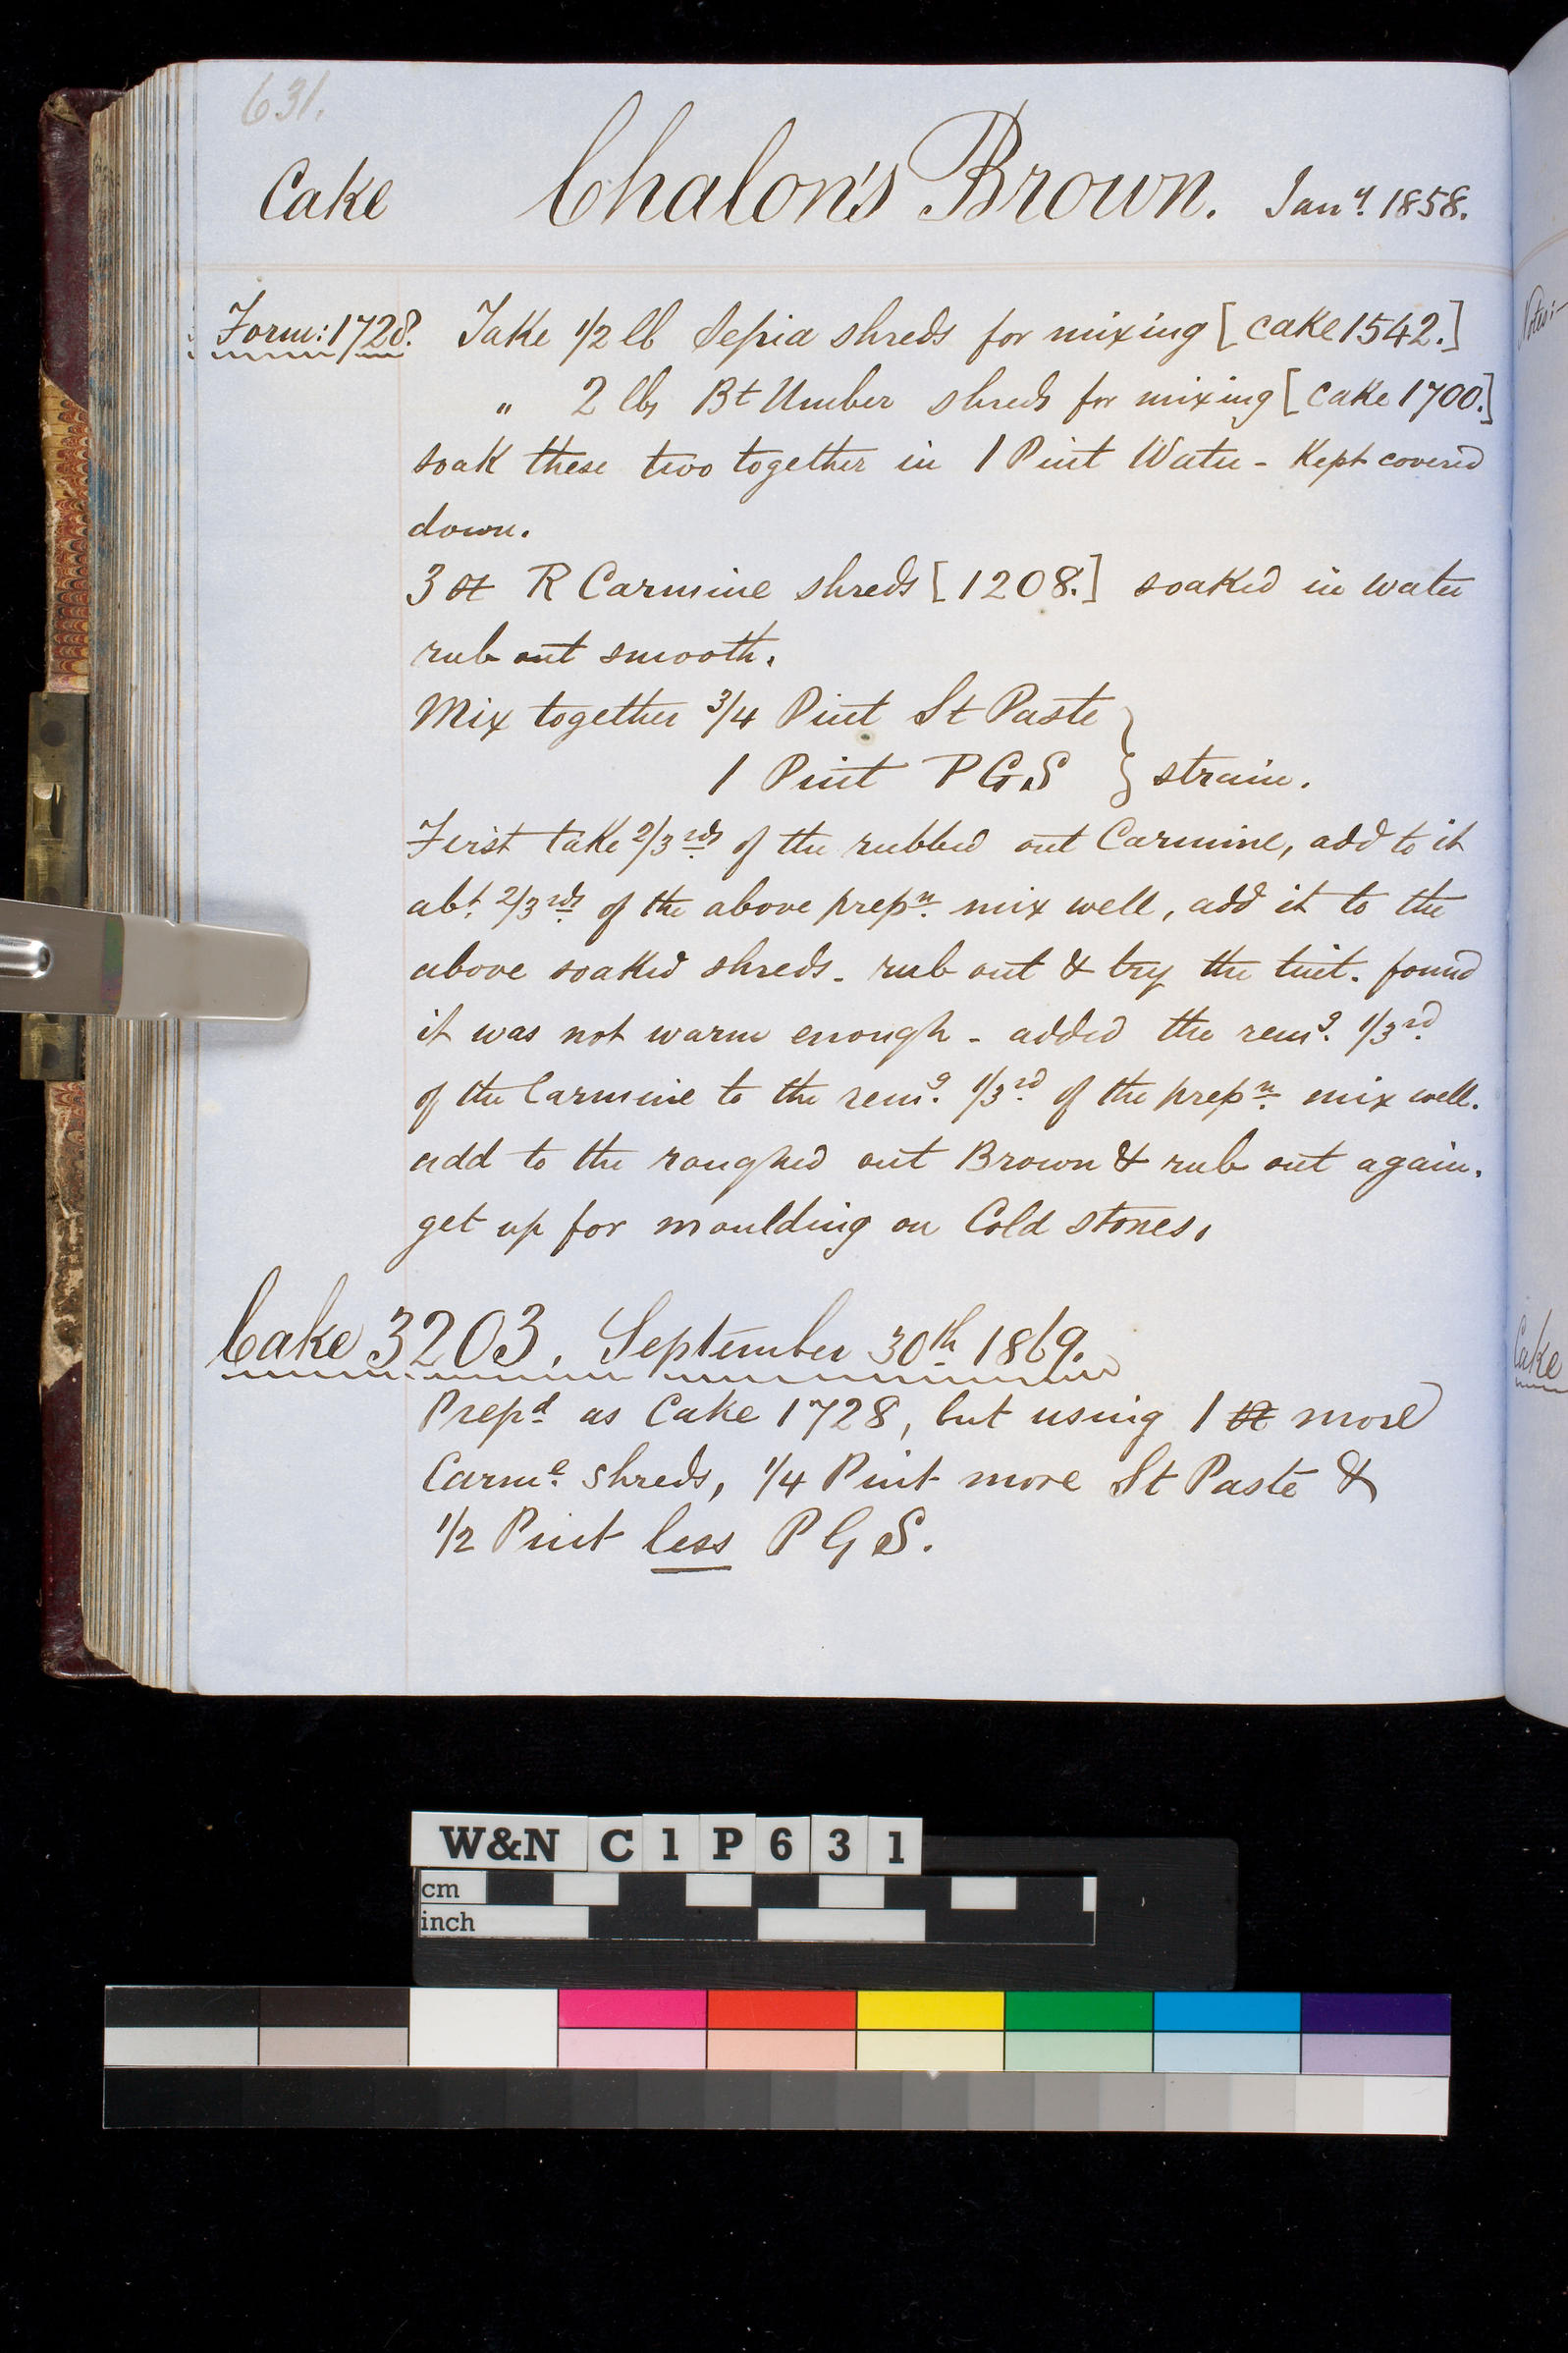 631.
Cake Chalon's Brown. Jany. 1858.
Form: 1728. Take 1/2 lb Sepia shreds for mixing [cake 1542.]
" 2 lbs Bt Umber shreds for mixing [cake 1700.]
soak these two together in 1 Pint Water - Kept covered
down.
3 oz R Carmine shreds [1208.] soaked in water
rub out smooth.
Mix together 3/4 Pint St Paste
1 Pint P G S } strain.
First take 2/3rds of the rubbed out Carmine, add to it
abt. 2/3rds of the above prepn. mix well, add it to the
above soaked shreds. rub out & try the tint. found
it was not warm enough - added the remg. 1/3rd
of the Carmine to the remg. 1/3rd of the prepn. mix well.
add to the roughed out Brown & rub out again.
get up for moulding on Cold stones.
Cake 3203. September 30th 1869.
Prepd. as Cake 1728, but using 1 oz more
Carme. shreds, 1/4 Pint more St Paste &
1/2 Pint less P G S.
Cake
W&N C1P631
cm
inch